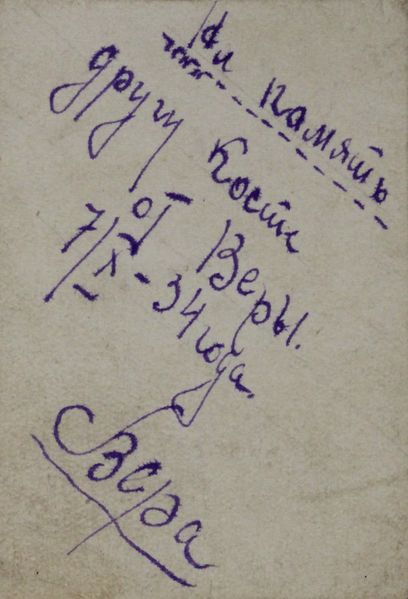 На память
другу Косте
от Веры.
7/X-34 года.
Вера